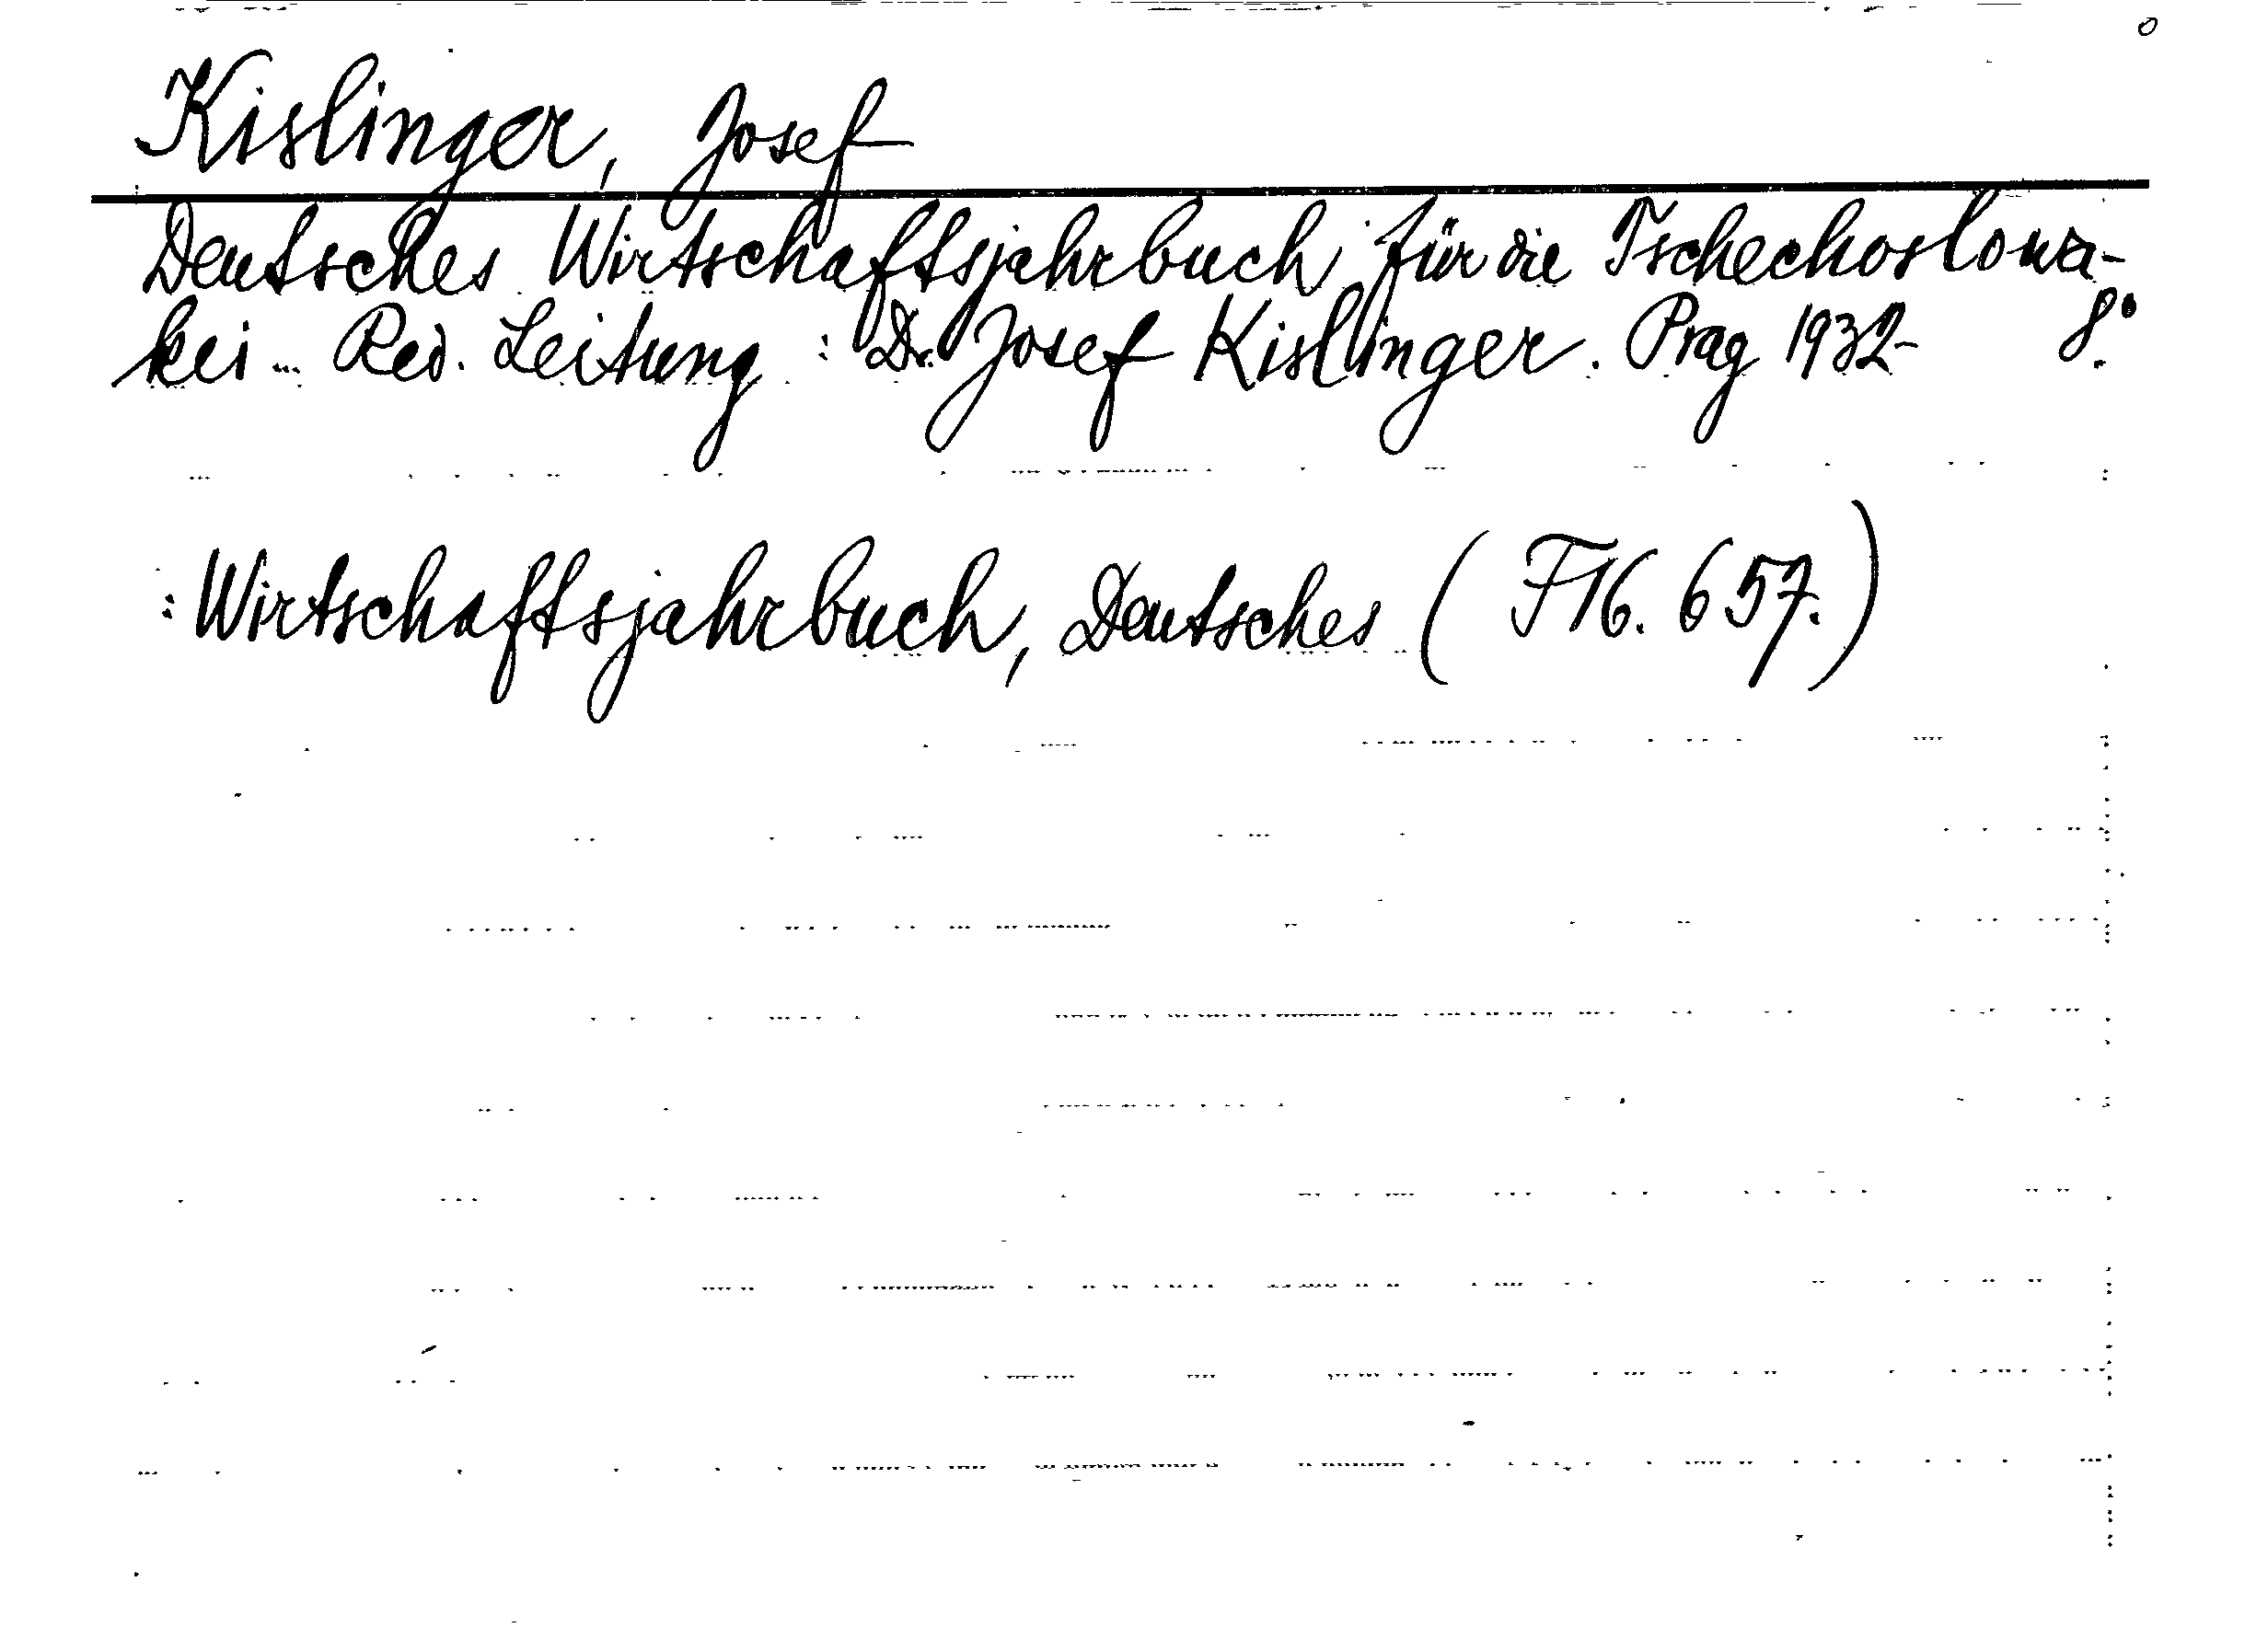 Kislinger, Josef
Deutsches Wirtschaftsjahrbuch für die Tschechoslowa-
kei ... Red. Leitung : Dr. Josef Kislinger. Prag 1932- 8°.
: Wirtschaftsjahrbuch, Deutsches (F16. 657.)